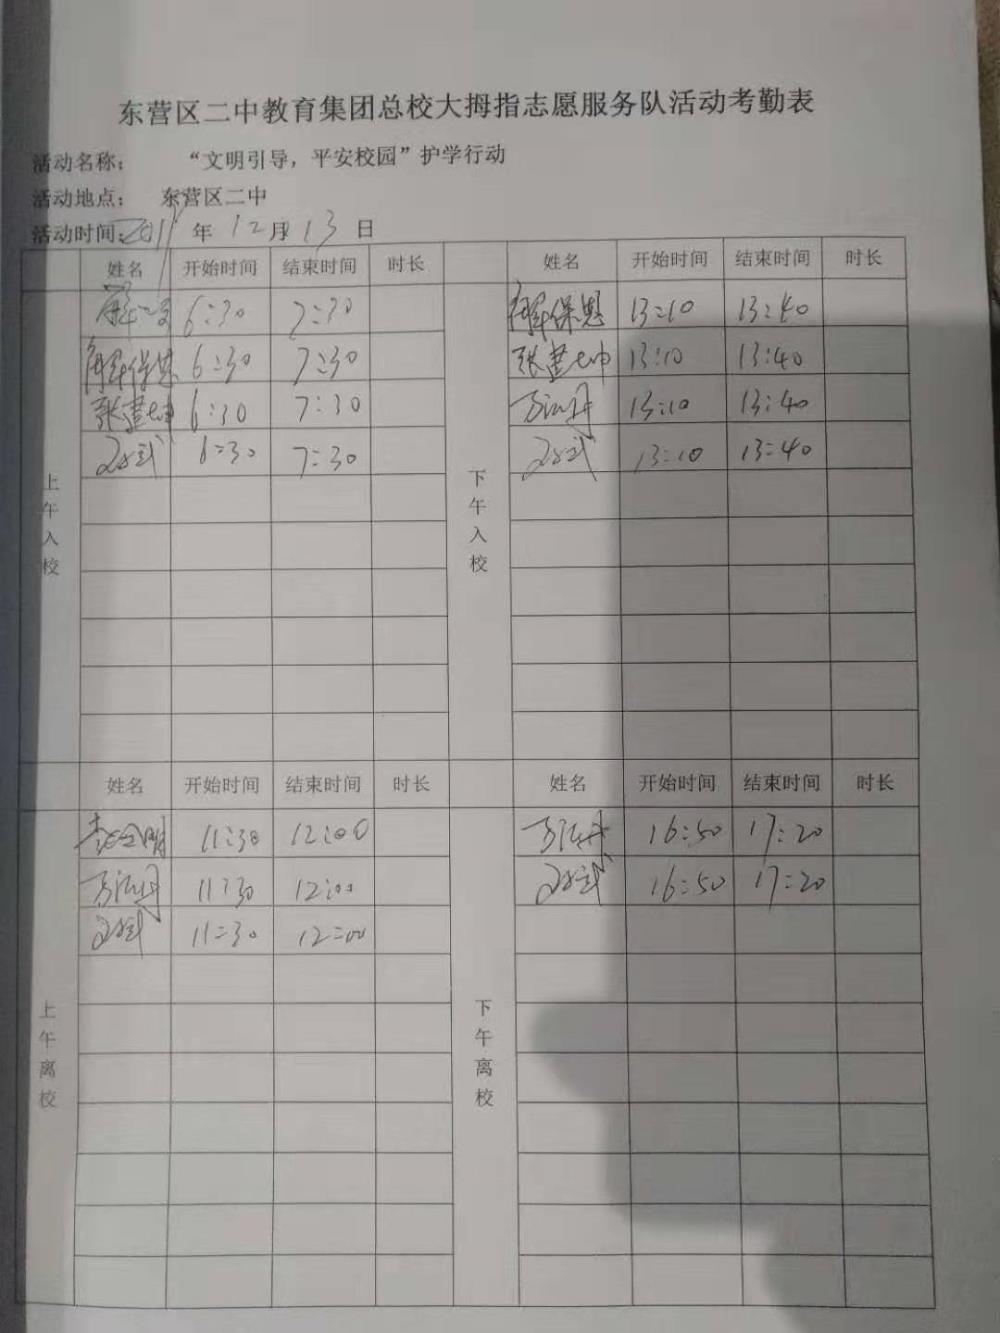 东营区二中教育集团总校大拇指志愿服务队活动考勤表
活动名称: “文明引导，平安校园”护学行动
活动地点: 东营区二中
活动时间: 年12月13日
姓名 开始时间 结束时间 时长 姓名 开始时间 结束时间 时长
上午入校 下午入校
6:30 7:30 解保恩 13:10 13:40
解保恩 6:30 7:30 张建坤 13:10 13:40
张建坤 6:30 7:30 13:10 13:40
6:30 7:30 13:10 13:40
姓名 开始时间 结束时间 时长 姓名 开始时间 结束时间 时长
上午离校 下午离校
11:30 12:00 16:50 17:20
11:30 12:00 16:50 17:20
11:30 12:00